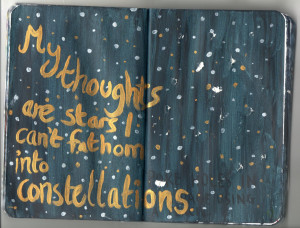 My
thoughts
are stars I
can't fathom
into
constellations.